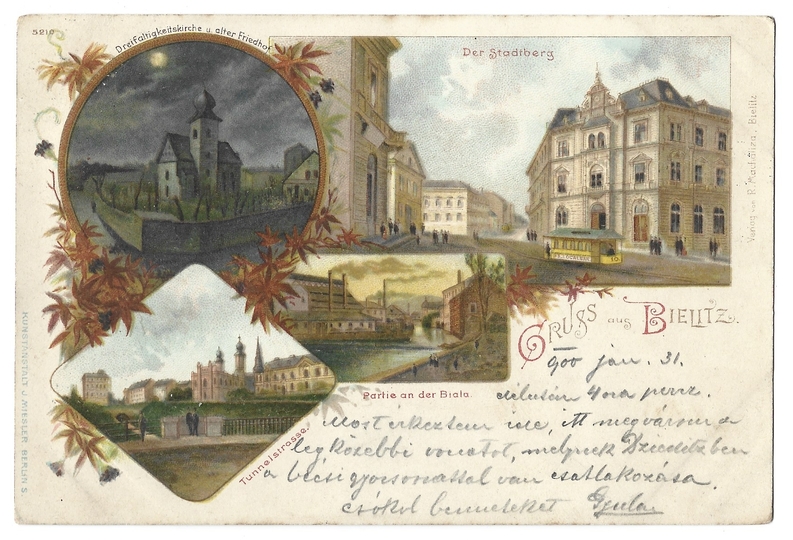 5210
Dreifaltigkeitskirche u. alter Friedhof
Der Stadtberg
Partie an der Biala.
Tunnelstrasse.
GRUSS aus BIELITZ.
KUNSTANSTALT J. MIESLER BERLIN S.
900 jan. 31.
délután 4 óra
Most érkeztem ide, itt megvárom a
legközelebbi vonatot, melynek Dzieditzben
a bécsi gyorsvonattal van csatlakozása.
csókol benneteket Gyula
Verlag von R. Bielitz.